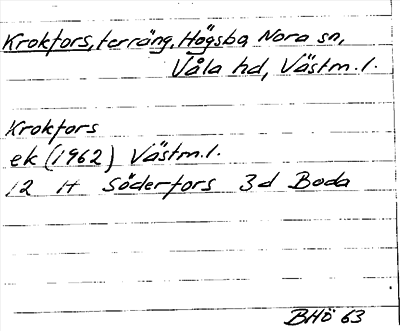 Krokfors, terräng, Högsbo, Nora sn,
Våla hd, Västm.l.
Krokfors
ek (1962) Västm.l.
12 H Söderfors 3d Boda
BHö 63